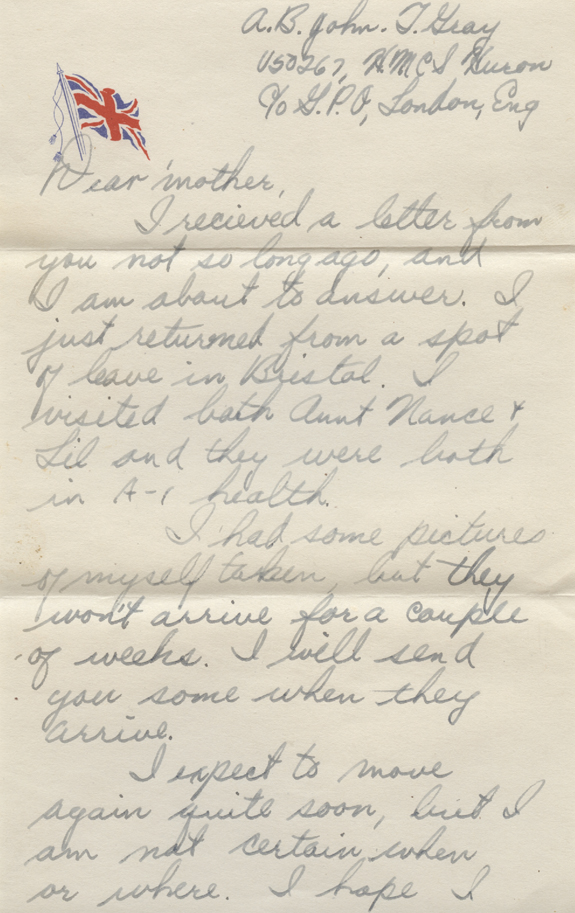 A.B. John. T. Gray
V50267, HMCS Huron
C/o G.P.O, London, Eng
Dear mother,
I recieved a letter from
you not so long ago, and
I am about to answer. I
just returned from a spot
of leave in Bristol. I
visited both Aunt Nance &
Lil and they were both
in A-1 health.
I had some pictures
of myself taken, but they
won't arrive for a couple
of weeks. I will send
you some when they
arrive.
I expect to move
again quite soon, but I
am not certain when
or where. I hope I